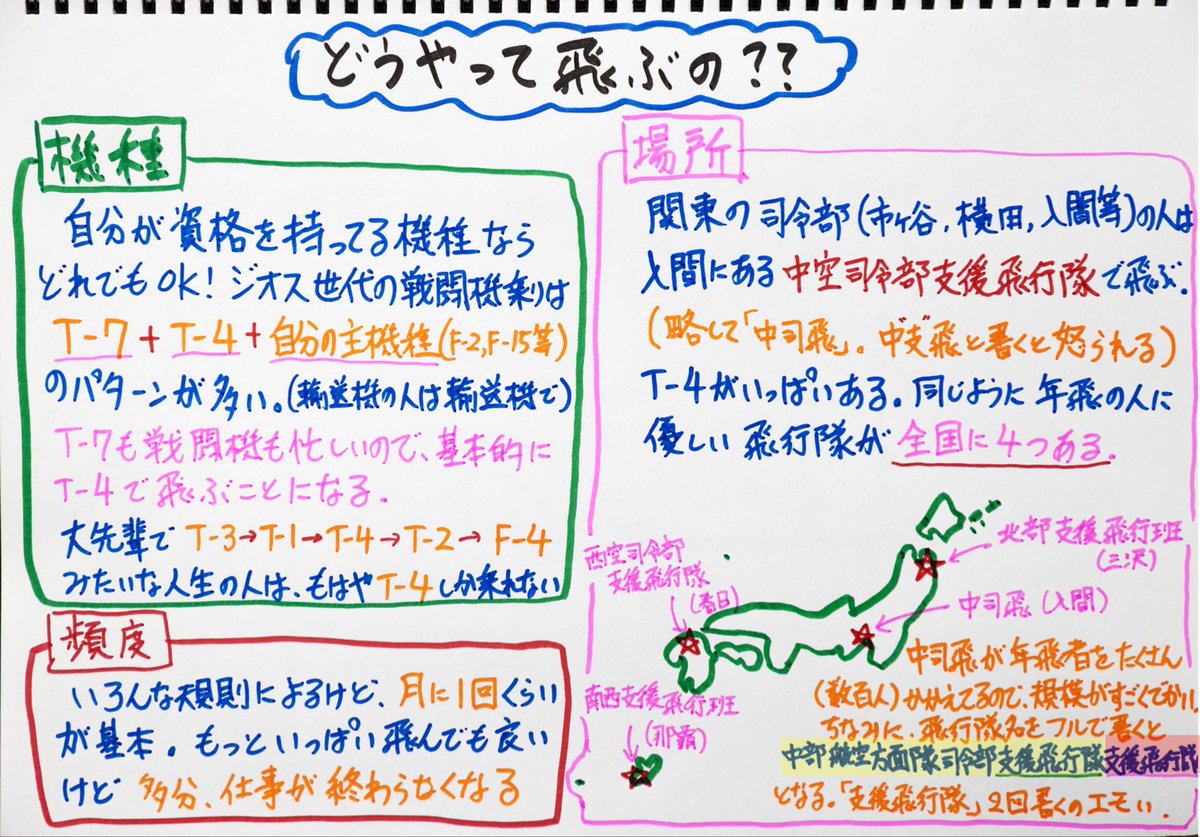 どうやって飛ぶの??
機種
自分が資格を持ってる機種なら
どれでもOK！ジオス世代の戦闘機乗りは
T-7＋T-4＋自分の主機種(F-2,F-15等)
のパターンが多い。(輸送機の人は輸送機で)
T-7も戦闘機も忙しいので、基本的に
T-4で飛ぶことになる。
大先輩で T-3→T-1→T-4→T-2→F-4
みたいな人生の人は、もはやT-4しか乗れない
頻度
いろんな規則によるけど、月に1回くらい
が基本。もっといっぱい飛んでも良い
けど 多分、仕事が終わらなくなる
場所
関東の司令部(市ヶ谷,横田,入間等)の人は
入間にある中空司令部支援飛行隊で飛ぶ.
(略して「中司飛」. 中"支"飛と書くと怒られる)
T-4がいっぱいある. 同じように年飛の人に
優しい飛行隊が全国に4つある.
北部支援飛行班
(三沢)
西空司令部
支援飛行隊
(春日)
中司飛(入間)
南西支援飛行班
(那覇)
中司飛が年飛者をたくさん
(数百人)かかえてるので、規模がすごくでかい.
ちなみに、飛行隊名をフルで書くと
中部航空方面隊司令部支援飛行隊支援飛行隊
となる.「支援飛行隊」2回書くのエモい